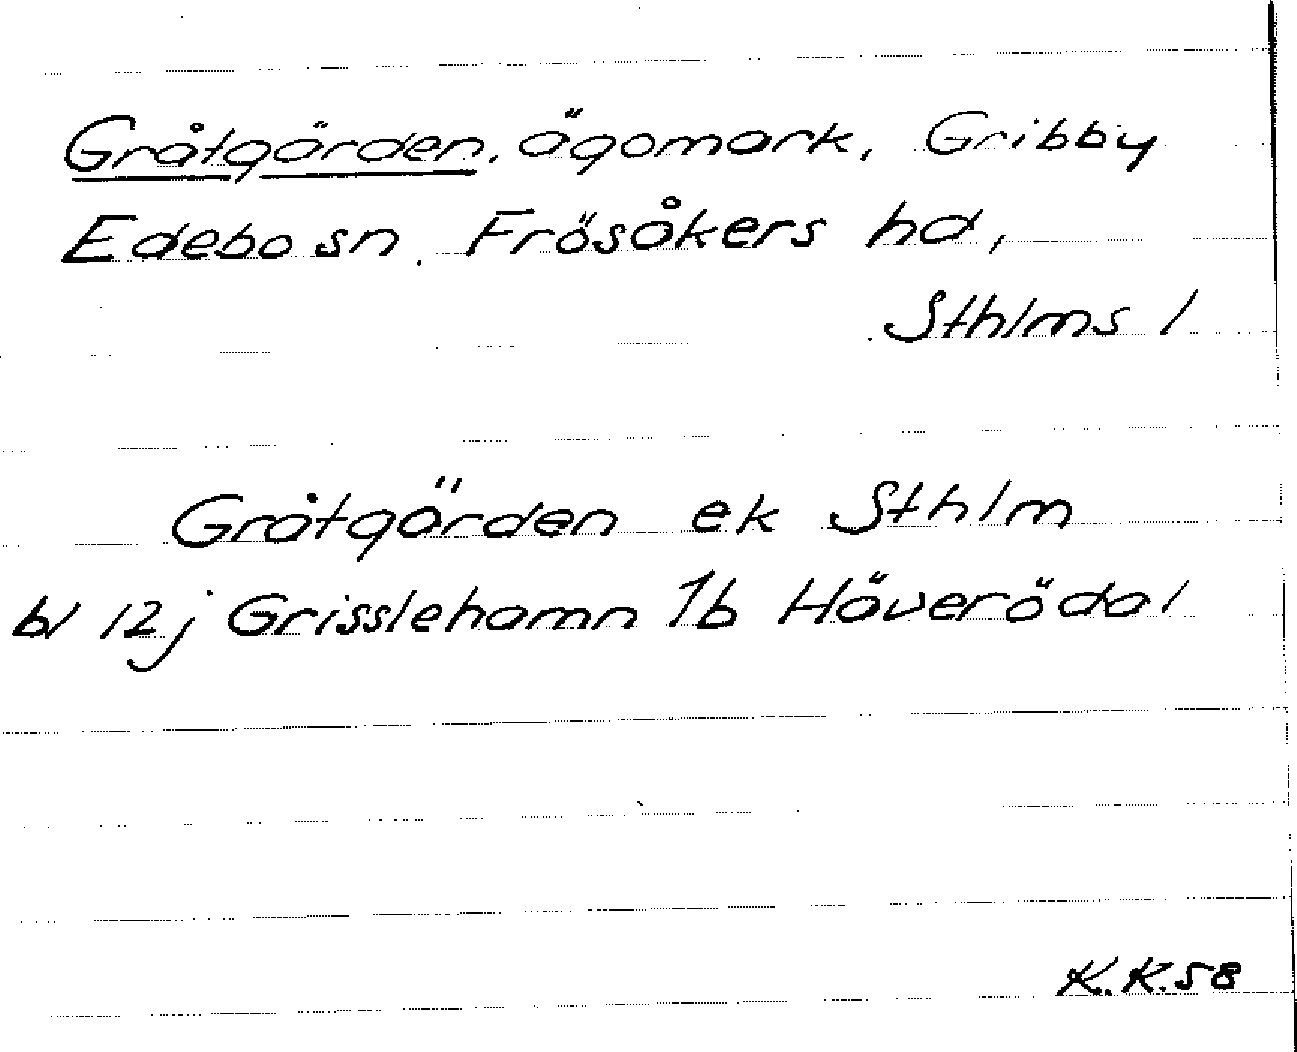 Gråtgärden, ägomark, Gribby
Edebo sn. Frösåkers hd,
Sthlms l
Gråtgärden ek Sthlm
bl 12j Grisslehamn 1b Häverödal
K.K.58